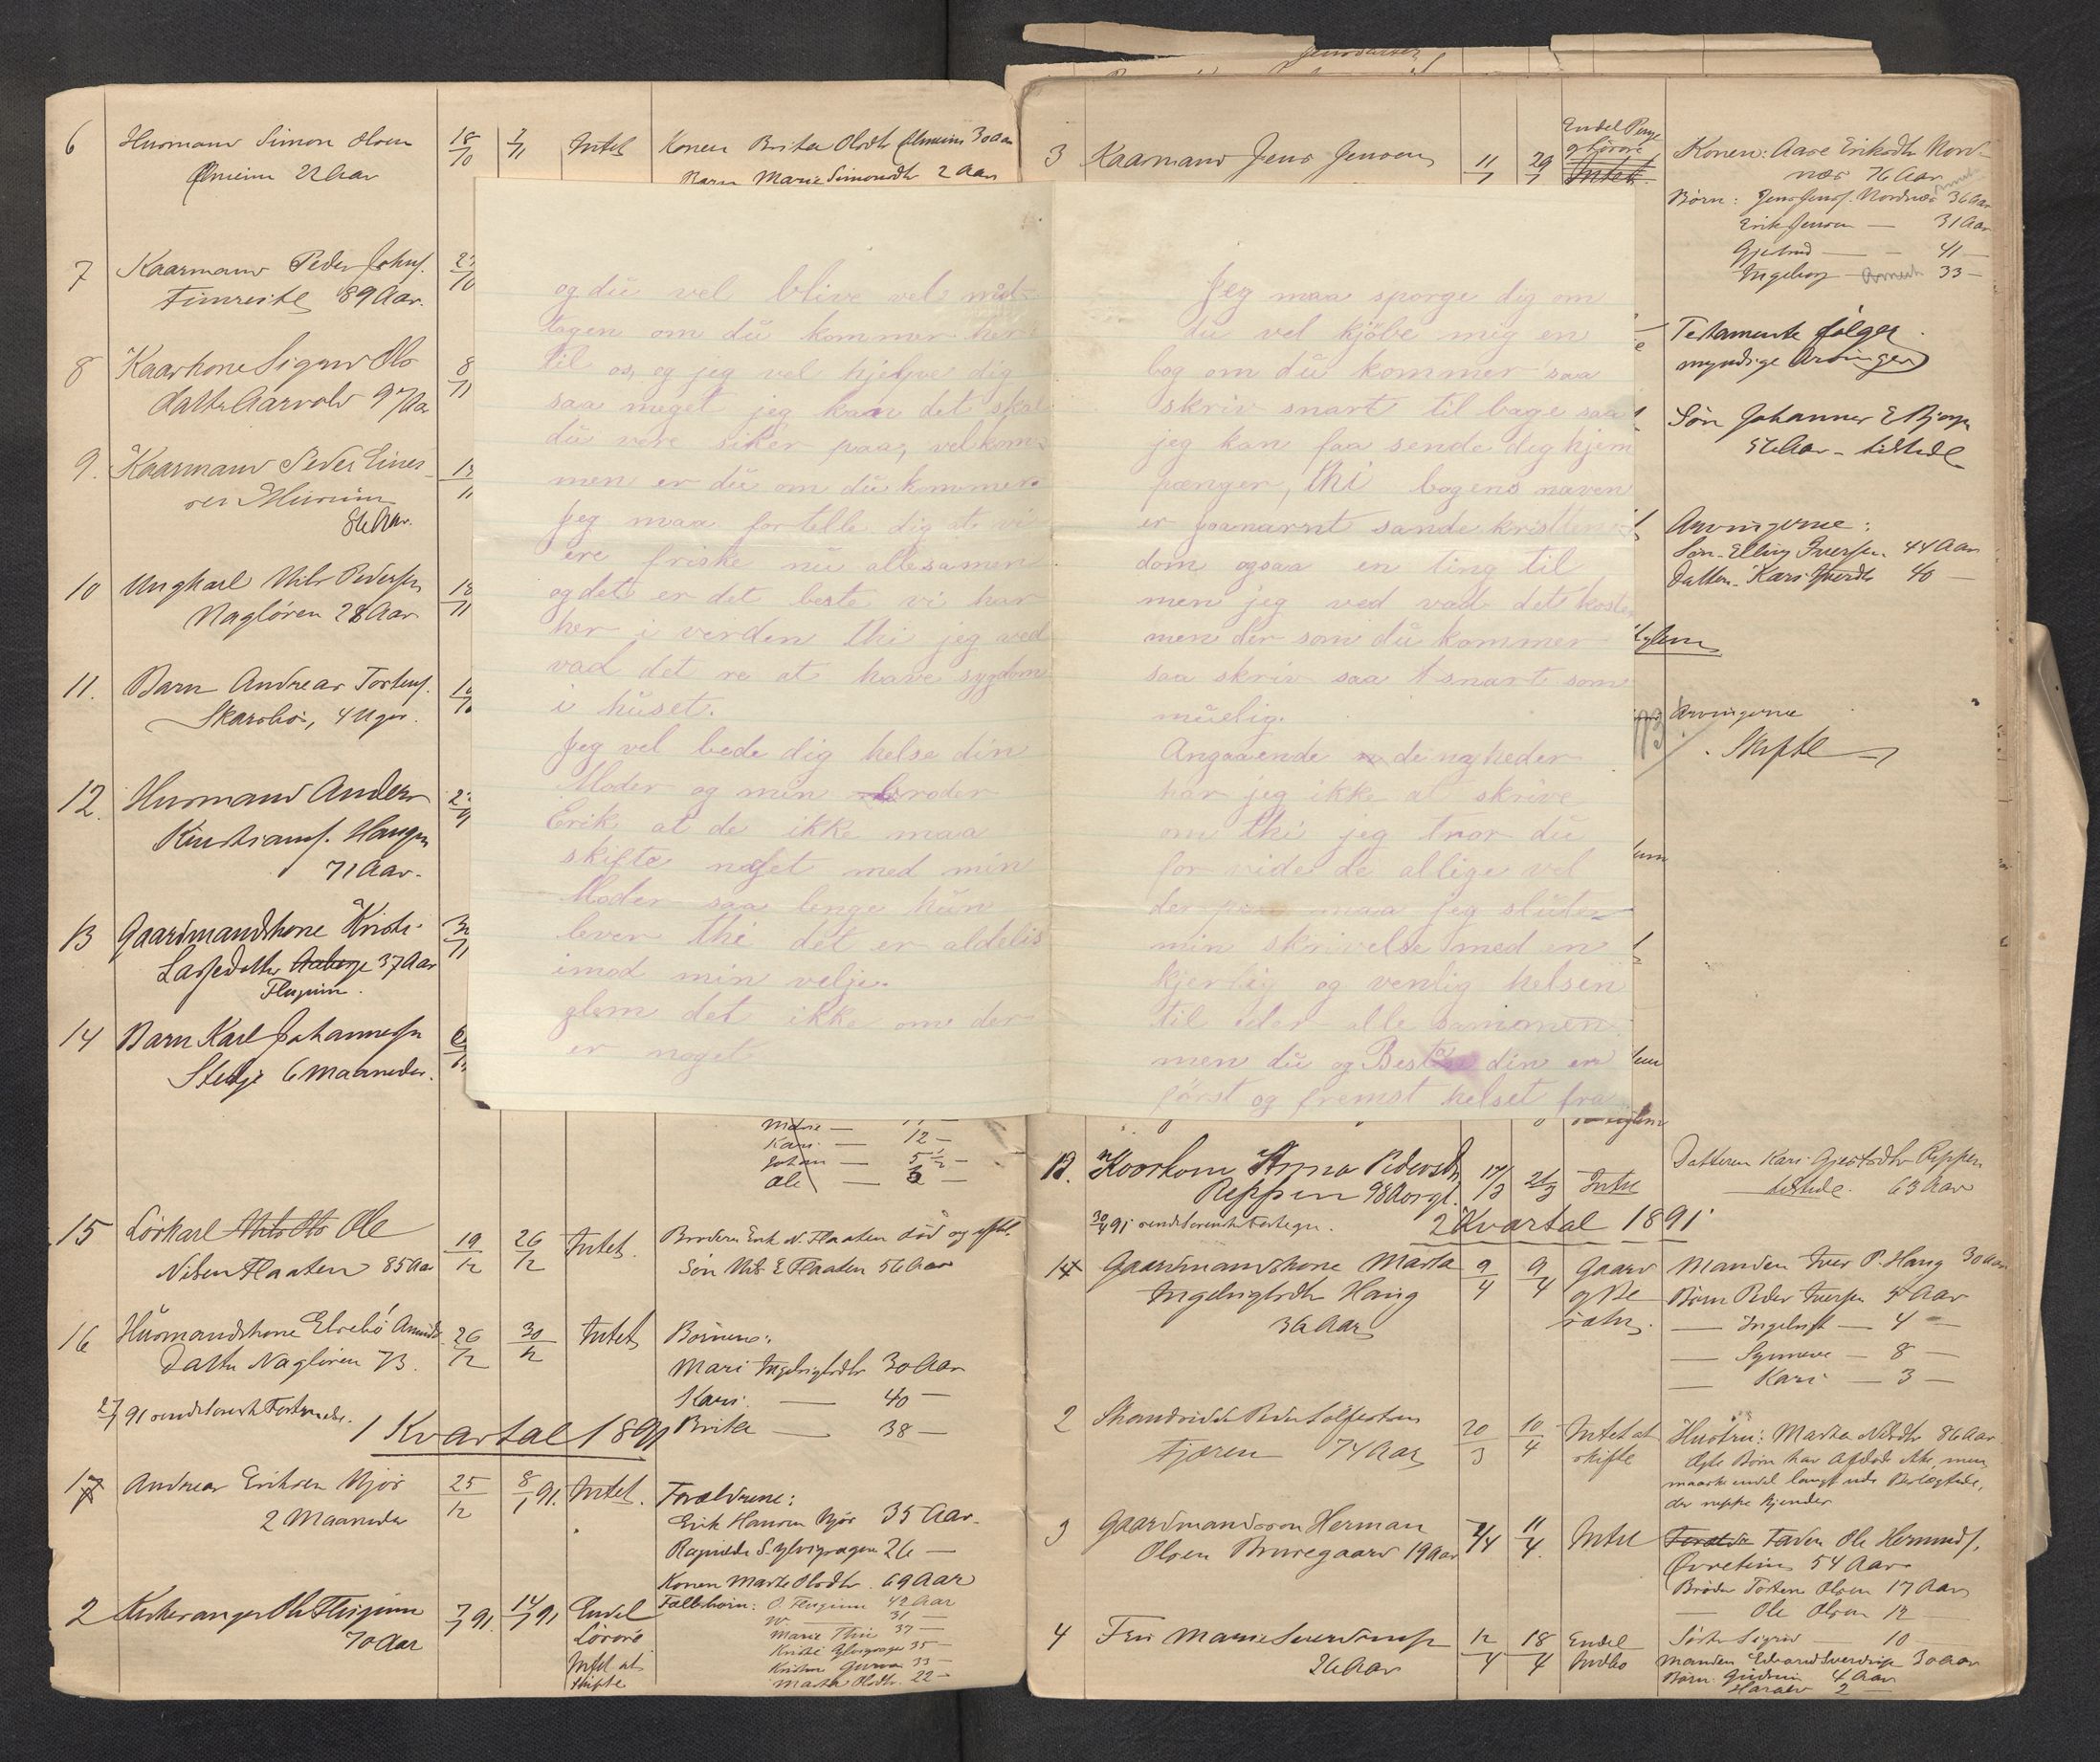 6 Husmand Simon Olsen 18/10 7/11 Intet Konen Brita Olsdtr 30 Aar
22 Aar Barn Marie Simonsdtr 2 Aar
7 Kaarmand Peder Johnf.
Timreite 89 Aar.
8 Kaarkone Sigrid Ols
datter Aarvold 97 Aar
9. Kaarmand Peder Einer
sen
86 Aar.
10 Ungkarl Nils Pedersen 18/11
Nagløren 28 Aar
11. Barn Andreas Torstens.
Skarsbø, 4 Uger.
12. Husmand Anders
Kristians. Haugen
71 Aar.
13 Gaardmandskone Kristi
Lassedatter Aaberge 37 Aar
Flugeim.
14 Barn Karl Johannessen
Stedje 6 Maaneder.
og du vel blive vel mod
tagen om du kommer her
til os, og jeg vel hjelpe dig
saa meget jeg kan det skal
du være siker paa, velkom-
men er du om du kommer.
Jeg maa fortelle dig at vi
ere friske nu allesamen
og det er det beste vi har
her i verden thi jeg ved
vad det re at have sygdom
i huset.
Jeg vel bede dig helse din
Moder og min broder
Erik at de ikke maa
skifte noget med min
Moder saa lenge hun
lever thi det er aldelis
imod min velje.
glem det ikke om der
er noget.
Marie —
Kari — 12 —
Johan — 5½ —
Ole — 2 —
15 Lørkarl Nils Ols Ole 19/12 26/12 Intet. Broderen Erik N. Flaaten død og efterl.
Nilsen Flaaten 85 Aar Søn Nils E Flaaten 56 Aar
16 Husmandskone Elsebø Amunds 26/12 30/12 Intet Børnene:
Datter Nagløren 73 Mari Ingebrigtsdtr 30 Aar
Kari — 40 —
27/1 91 sendt Sorenskr. Fortegnelse. Brita — 38 —
1 Kvartal 1891
1 Andreas Eriksen Njøs 25/12 8/1 91. Intet. Forældrene:
2 Maaneder Erik Hansen Njøs 35 Aar.
Ragnilda S. Ylvisvagen 26 —
Konen Marte Olsdtr. 69 Aar
2 Kirkesanger Ole Flugeim 7/1 91. 14/1 91 Endel Fællesbørn: O. Flugeim 42 Aar
70 Aar Løsøre 31 —
Intet at Marie Thue 37 —
skifte Kristi Ylvisvagen 35 —
Kristine 33 —
Marta Olsdtr. 22 —
3 Kaarmand Jens Jensen 11/1 29/1 Endel Penge og Løsøre Intet. Konen: Aase Eriksdtr Nord-
næs 76 Aar
Børn: Jens Jensf. Nordnæs 36 Aar
Erik Jensen — 31 Aar
Gjertrud — 41 —
Ingeborg — 33 —
Testamente følger.
myndige Arvinger
Søn Johannes E Bjerga
56 Aar - tilstede
Arvingerne:
Søn - Elling Iversen. 44 Aar
Datter - Kari Iversdtr 40 —
Arvingerne
Skifte
Jeg maa sporge dig om
du vel kjöbe mig en
bog om du kommer saa
skriv snart til bage saa
jeg kan faa sende dig hjem
pænger, thi bogens naven
er Joanarnt sande kristten
dom ogsaa en ting til
men jeg ved vad det koster
men der som du kommer
saa skriv saa snart som
muelig.
Angaaende de nyheder
har jeg ikke at skrive
om thi jeg tror du
for vide de allige vel
der paa maa jeg slüte
min skrivelse med en
kjerlig og venlig helsen
til eder alle sammen
men du og Beste din er
först og fremst helset fra
13. Kaarkone Anna Pedersdtr 17/3 21/3 Intet Datteren Kari Gjertsdtr Reppen
Reppen 98 Aar gl. tilstede. 63 Aar
30/4 91 sendt Sorenskr. Fortegn.
2 Kvartal 1891
1 Gaardmandskone Marta 9/4 9/4 Gaard Manden Iver P. Haug 30 Aar
Ingebrigtsdtr Haug og Be Børn Peder Iversen 4 Aar
36 Aar sætn. — Ingebrigt — 4 —
— Synneve — 8 —
— Kari — 3 —
2 Strandsidder Peder Tolfestsen 20/3 10/4 Intet at Hustru: Marta Nilsdtr 86 Aar
Fjæren 74 Aar skifte Egte Børn har Afdøde ikke, men
maaske endel langt ude Beslægtede,
der neppe kjendes
3 Gaardmandssøn Herman 2/4 11/4. Intet Forældr Faderen Ole Hermunds.
Olsen Bruregaard 19 Aar Øvretun 54 Aar
Brødre Torstein Olsen 17 Aar
— Ole Olsen 12 —
4 Fru Marie Sverdrup 12/4 18/4 Endel Søster Sigrid — 10 —
26 Aar Indbo Manden Edvard Sverdrup 30 Aar
Børn. Gudrun 4 Aar
Harald 2 —